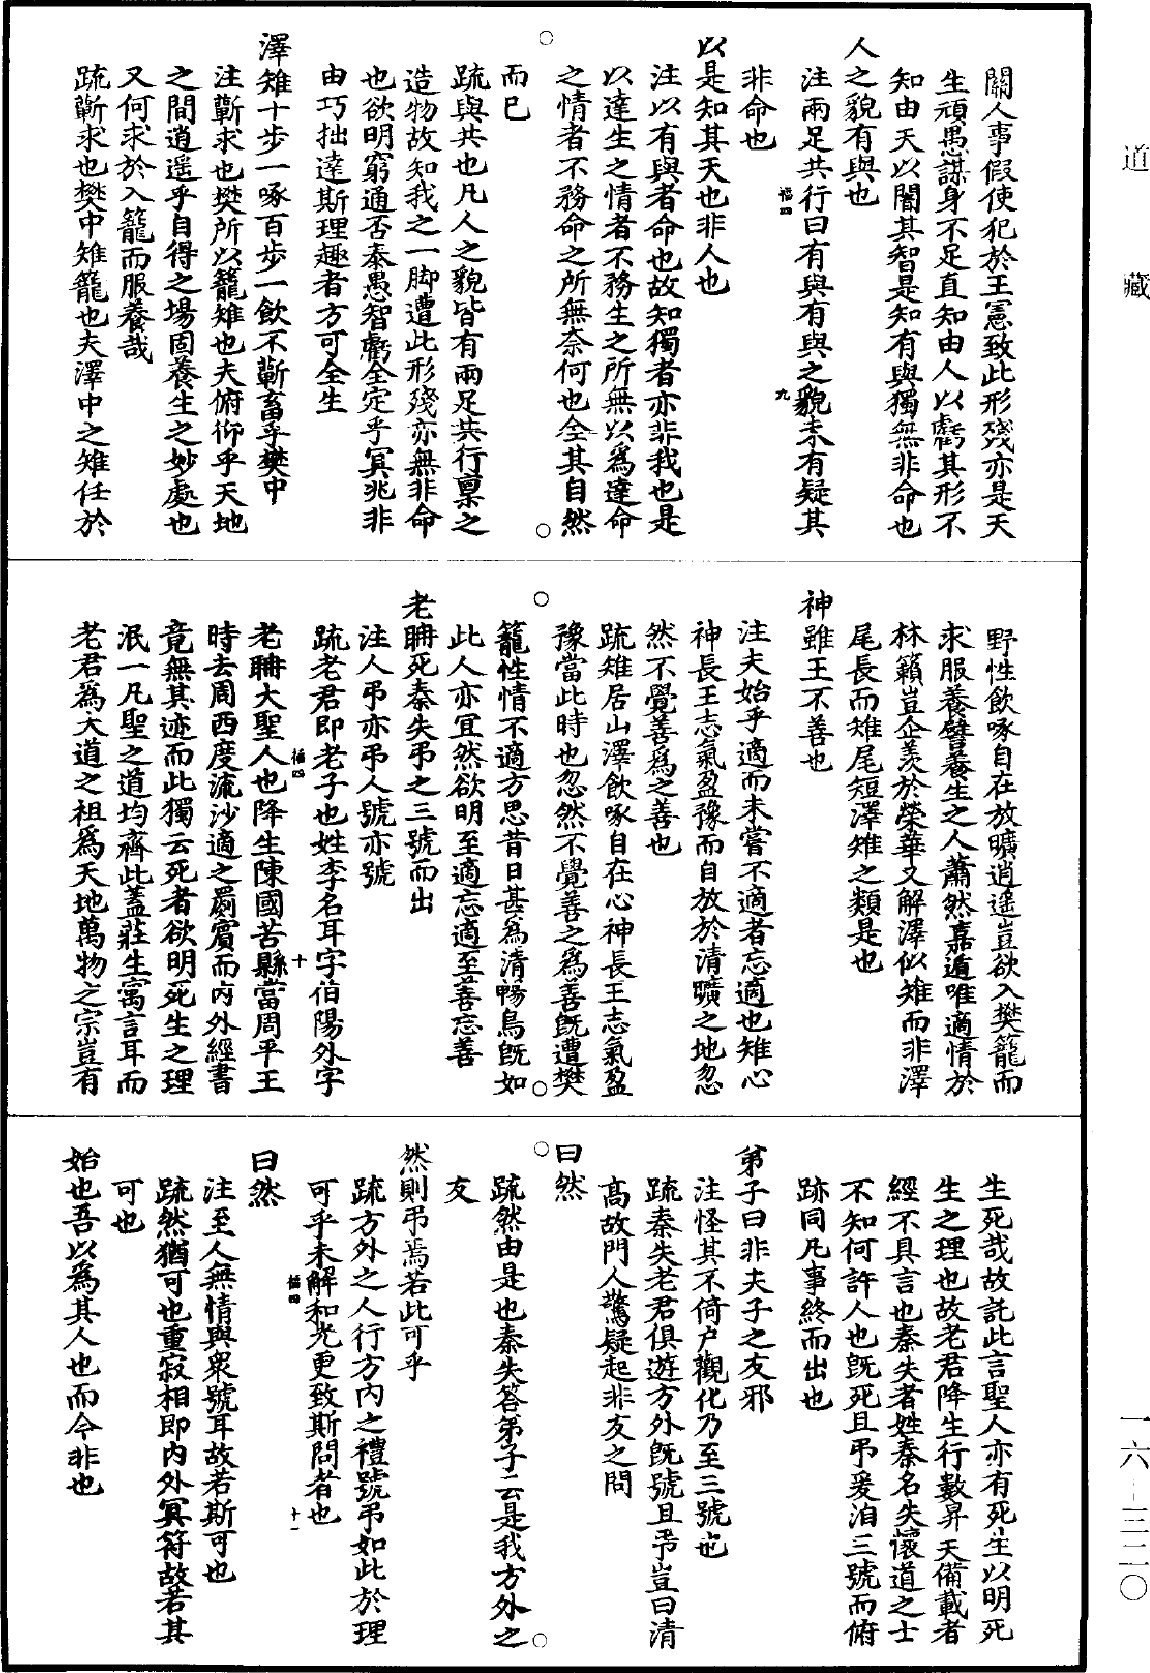 道藏
一六—三二〇
關人事假使犯於王憲致此形殘亦是天
生頑愚謀身不足直知由人以虧其形不
知由天以闇其智是知有與獨無非命也
人之貌有與也
注兩足共行曰有與有與之貌未有疑其
非命也
福四
九
以是知其天也非人也
注以有與者命也故知獨者亦非我也是
以達生之情者不務生之所無以爲達命
之情者不務命之所無奈何也全其自然
而已
疏與共也凡人之貌皆有兩足共行稟之
造物故知我之一脚遭此形殘亦無非命
也欲明窮通否泰愚智虧全定乎冥兆非
由巧拙達斯理趣者方可全生
澤雉十步一啄百步一飲不蘄畜乎樊中
注蘄求也樊所以籠雉也夫俯仰乎天地
之間逍遥乎自得之場固養生之妙處也
又何求於入籠而服養哉
疏蘄求也樊中雉籠也夫澤中之雉任於
野性飲啄自在放曠逍遥豈欲入樊籠而
求服養譬養生之人蕭然嘉遁唯適情於
林籟豈企羨於榮華又解澤似雉而非澤
尾長而雉尾短澤雉之類是也
神雖王不善也
注夫始乎適而未嘗不適者忘適也雉心
神長王志氣盈豫而自放於清曠之地忽
然不覺善爲之善也
疏雉居山澤飲啄自在心神長王志氣盈
豫當此時也忽然不覺善之爲善既遭樊
籠性情不適方思昔日甚爲清暢鳥既如
此人亦宜然欲明至適忘適至善忘善
老聃死秦失弔之三號而出
注人弔亦弔人號亦號
疏老君即老子也姓李名耳字伯陽外字
福四
十
老聃大聖人也降生陳國苦縣當周平王
時去周西度流沙適之罽賓而内外經書
竟無其迹而此獨云死者欲明死生之理
泯一凡聖之道均齊此蓋莊生寓言耳而
老君爲大道之祖爲天地萬物之宗豈有
生死哉故託此言聖人亦有死生以明死
生之理也故老君降生行數昇天備載者
經不具言也秦失者姓秦名失懷道之士
不知何許人也既死且弔爰洎三號而俯
跡同凡事終而出也
弟子曰非夫子之友邪
注怪其不倚户觀化乃至三號也
疏秦失老君俱遊方外既號且弔豈曰清
高故門人驚疑起非友之問
曰然
疏然由是也秦失答弟子云是我方外之
友
然則弔焉若此可乎
疏方外之人行方内之禮號弔如此於理
可乎未解和光更致斯問者也
福四
十一
曰然
注至人無情與衆號耳故若斯可也
疏然猶可也重寂相即内外冥符故若其
可也
始也吾以爲其人也而今非也